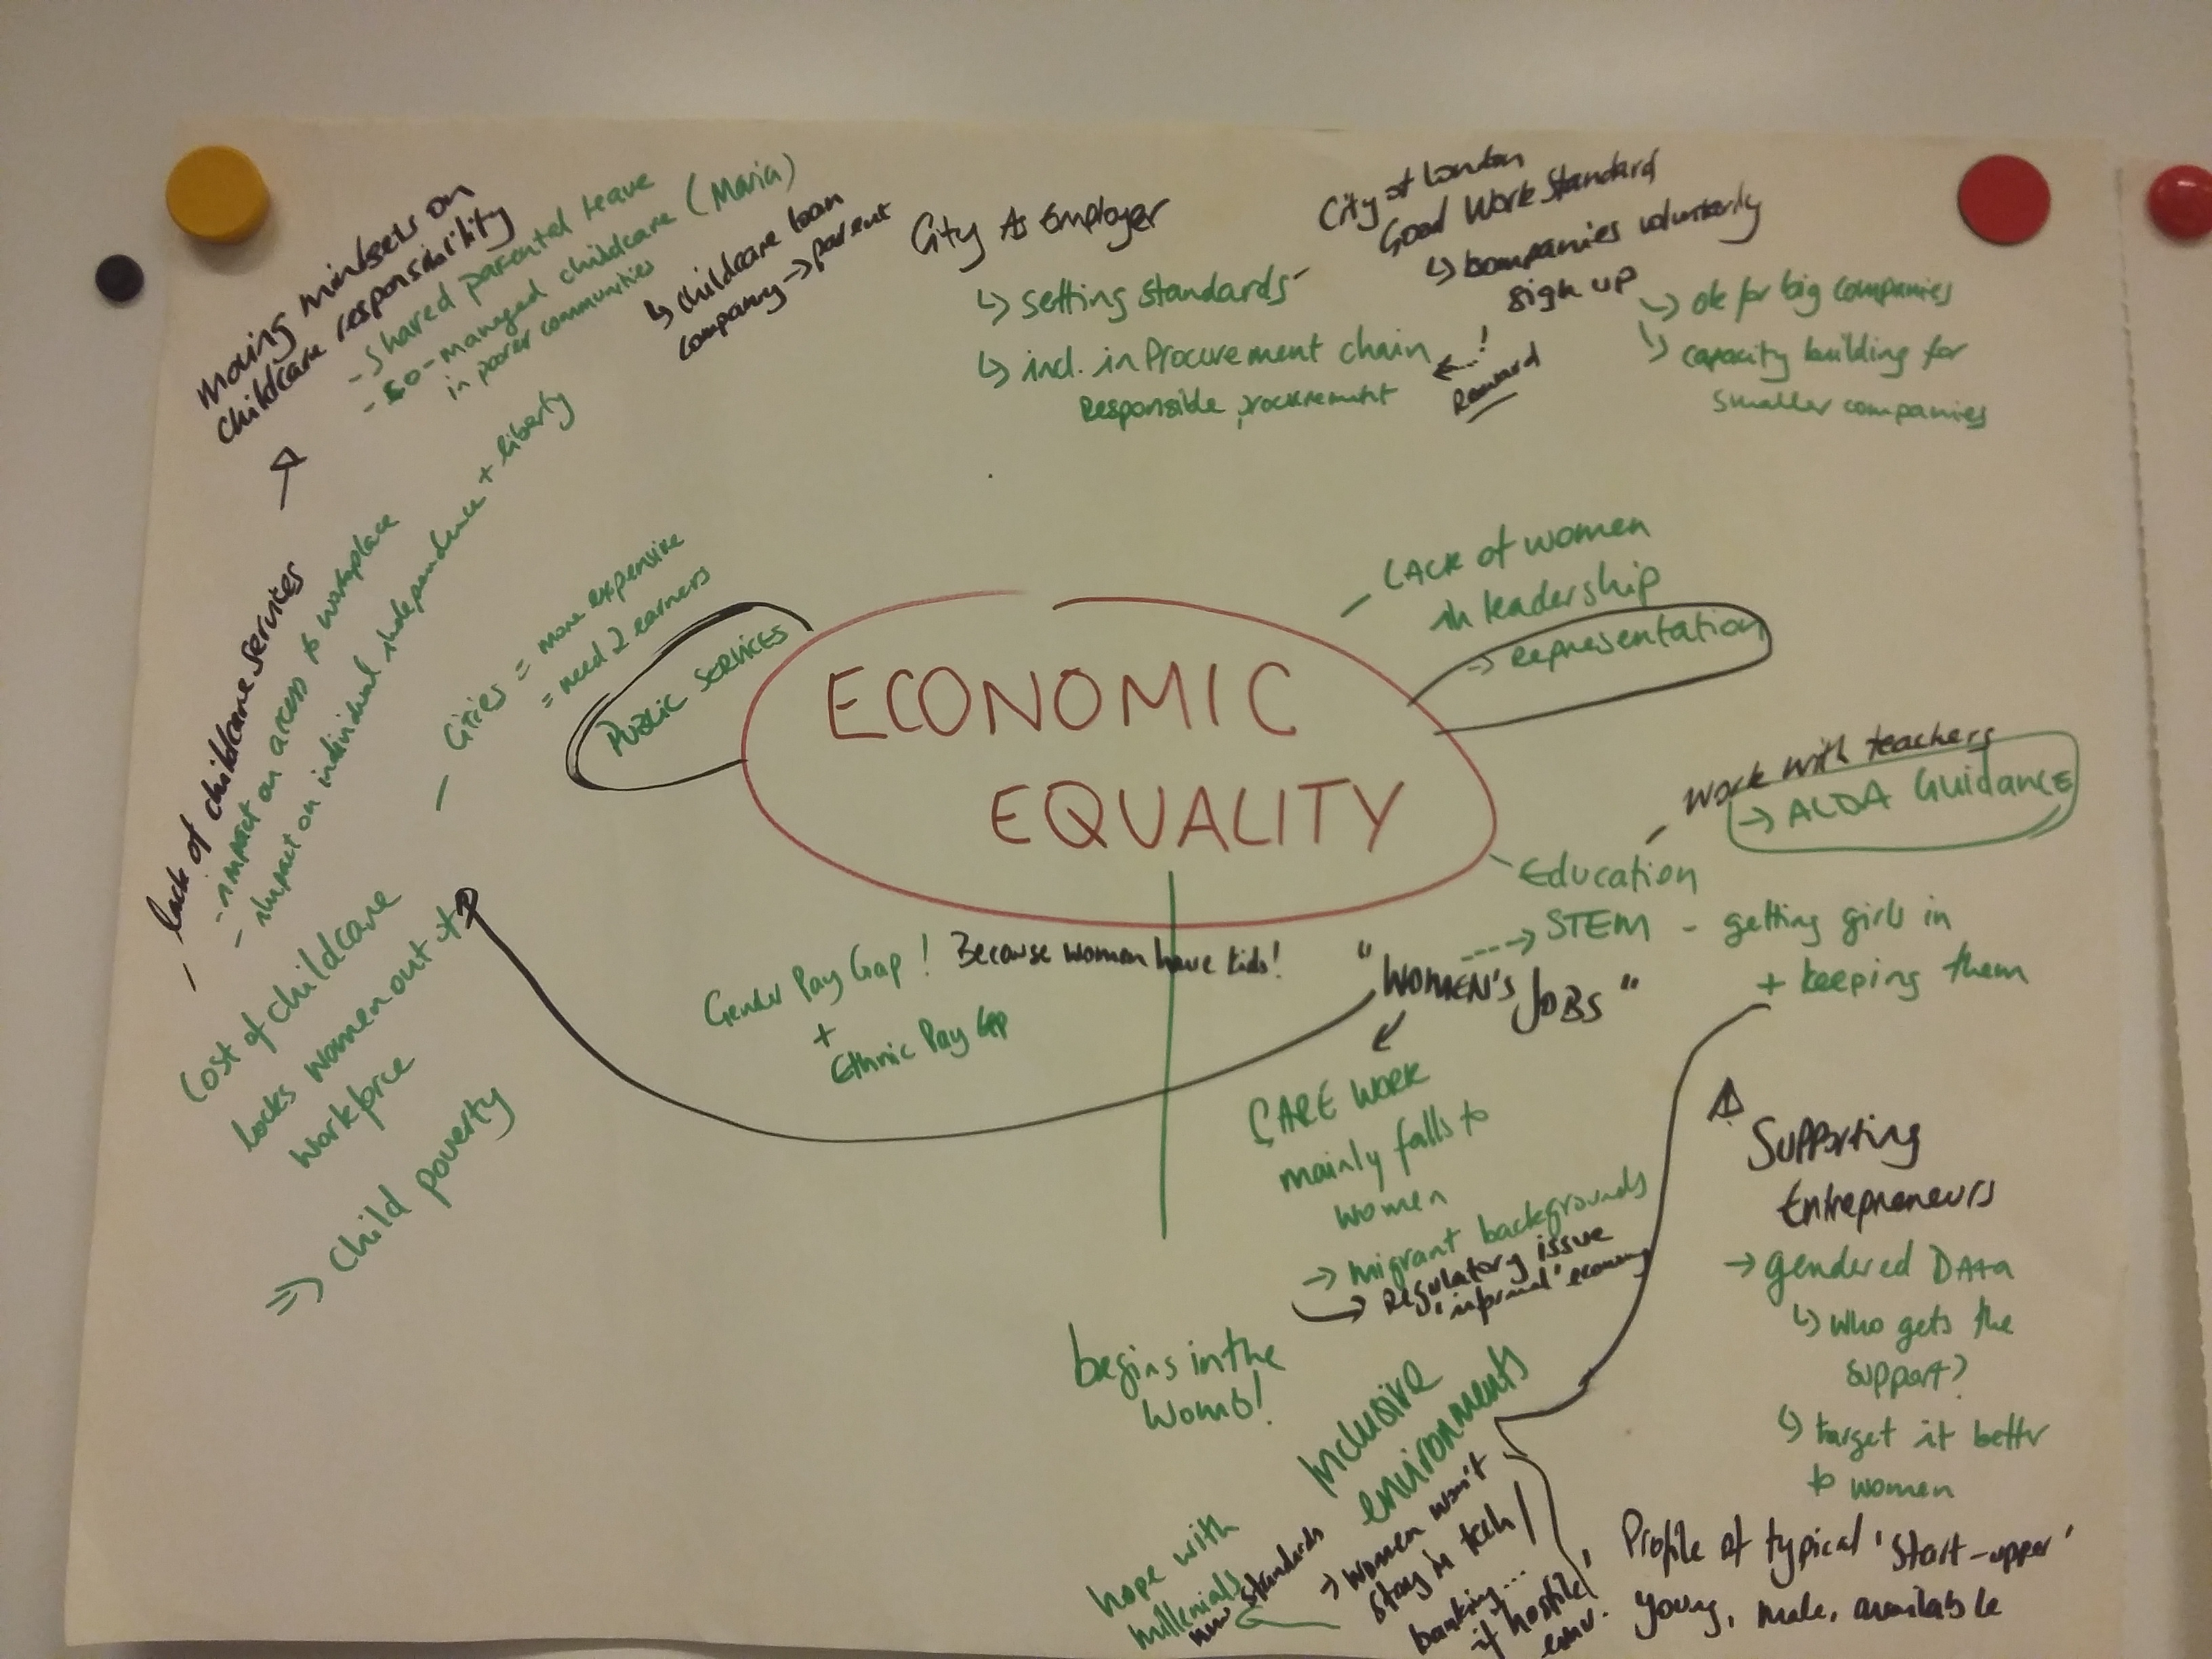 Moving mindsets on
childcare responsibility
- Shared parental leave
- co-managed childcare (Maria)
in poorer communities
↳ childcare loan
company → parent
City As Employer
↳ setting standards
↳ incl. in Procurement chain
Responsible procurement
City of London
Good Work Standard
↳ companies voluntarily
sign up
!
Reward
↳ ok for big companies
↳ capacity building for
smaller companies
- lack of childcare services
- impact on access to workplace
- impact on individual independence + liberty
- Cities = more expensive
= need 2 earners
PUBLIC SERVICES
ECONOMIC
EQUALITY
- LACK of women
in leadership
→ representation
Work with teachers
→ ALDA Guidance
- Education
STEM - getting girls in
+ keeping them
Cost of childcare
locks women out of
workforce
⇒ Child poverty
Gender Pay Gap! Because women have kids!
+
Ethnic Pay Gap
"WOMEN'S JOBS"
CARE WORK
mainly falls to
women
→ migrant backgrounds
→ Regulatory issue
'informal' economy
Supporting
Entrepreneurs
→ gendered DATA
↳ who gets the
support?
↳ target it better
to women
begins in the
Womb!
Inclusive
environments
→ women won't
stay in tech /
banking...
if hostile
env.
hope with
millenials
new standards
Profile of typical 'start-upper'
young, male, available